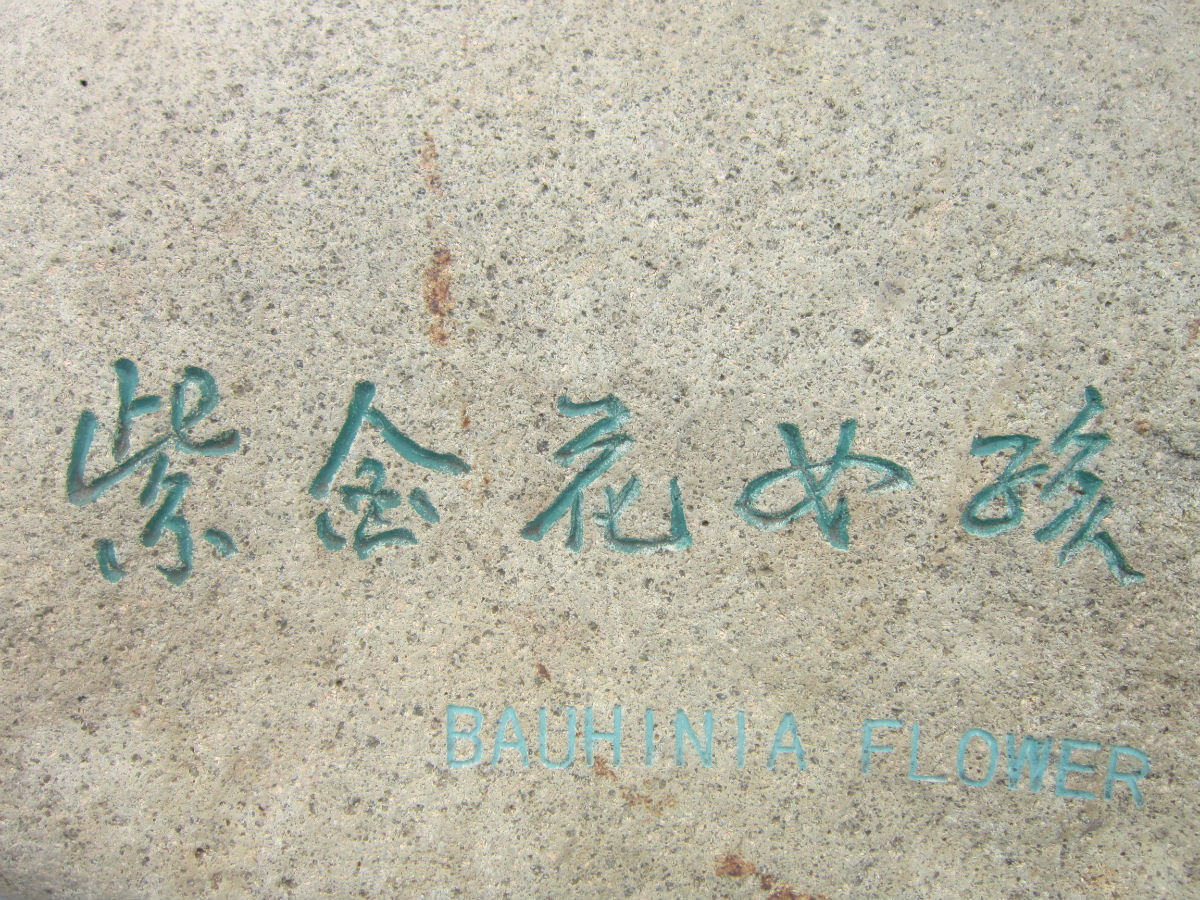 紫金花女孩
BAUHINIA FLOWER